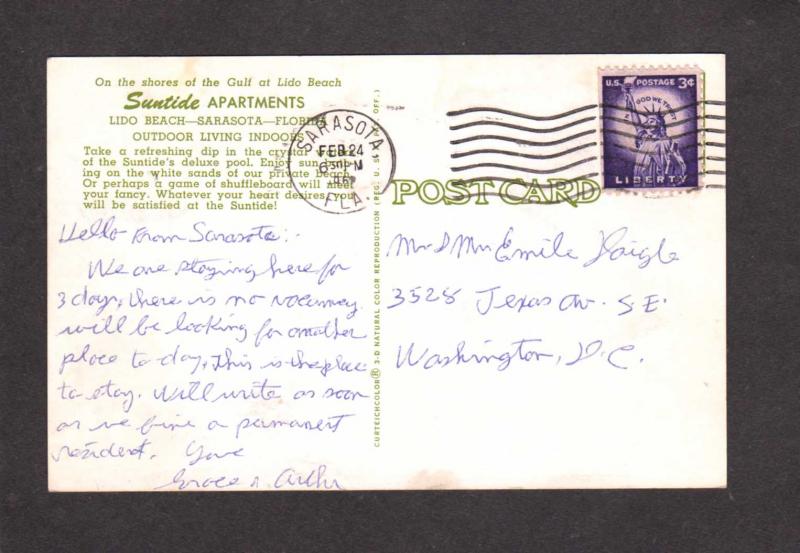 On the shores of the Gulf at Lido Beach
Suntide APARTMENTS
LIDO BEACH—SARASOTA—FLORIDA
OUTDOOR LIVING INDOORS
Take a refreshing dip in the crystal
of the Suntide's deluxe pool. Enjoy sun
ing on the white sands of our private Beach.
Or perhaps a game of shuffleboard will meet
your fancy. Whatever your heart desires, you
will be satisfied at the Suntide!
Hello from Sarasota:-
We are staying here for
3 days, there is no vacancy
will be looking for another
place to-day, this is the place
to stay. Will write as soon
as we fine a permanent
resident. Your
Grace & Arthur
CURTEICHCOLOR® 3-D NATURAL COLOR REPRODUCTION (REG. U.S. OFF.)
SARASOTA
FEB 24
630 PM
FLA.
U.S. POSTAGE 3¢
IN GOD WE TRUST
LIBERTY
POST CARD
Mr & Mrs Emile Daigle
3528 Texas Av. S.E.
Washington, D.C.